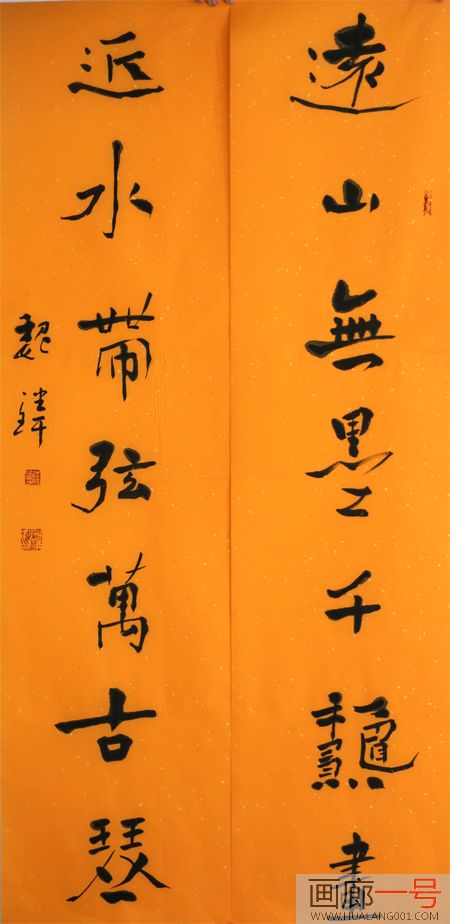 遠山無墨千龝畫
近水帶弦萬古琴
魏
画廊一号
WWW.HUALANG001.COM